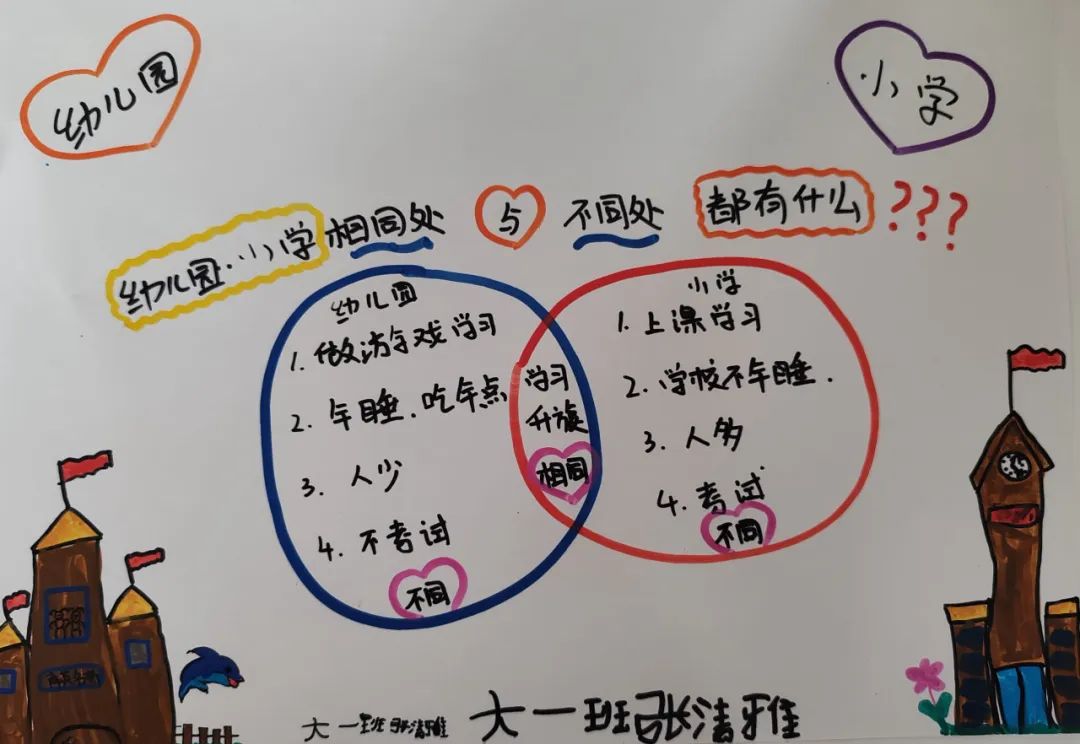 幼儿园
小学
幼儿园··小学相同处 与 不同处 都有什么???
幼儿园
1. 做游戏学习
2. 午睡.吃午点
3. 人少
4. 不考试
不同
学习
升旗
相同
小学
1. 上课学习
2. 学校不午睡.
3. 人多
4. 考试
不同
大一班张洁雅
大一班张洁雅